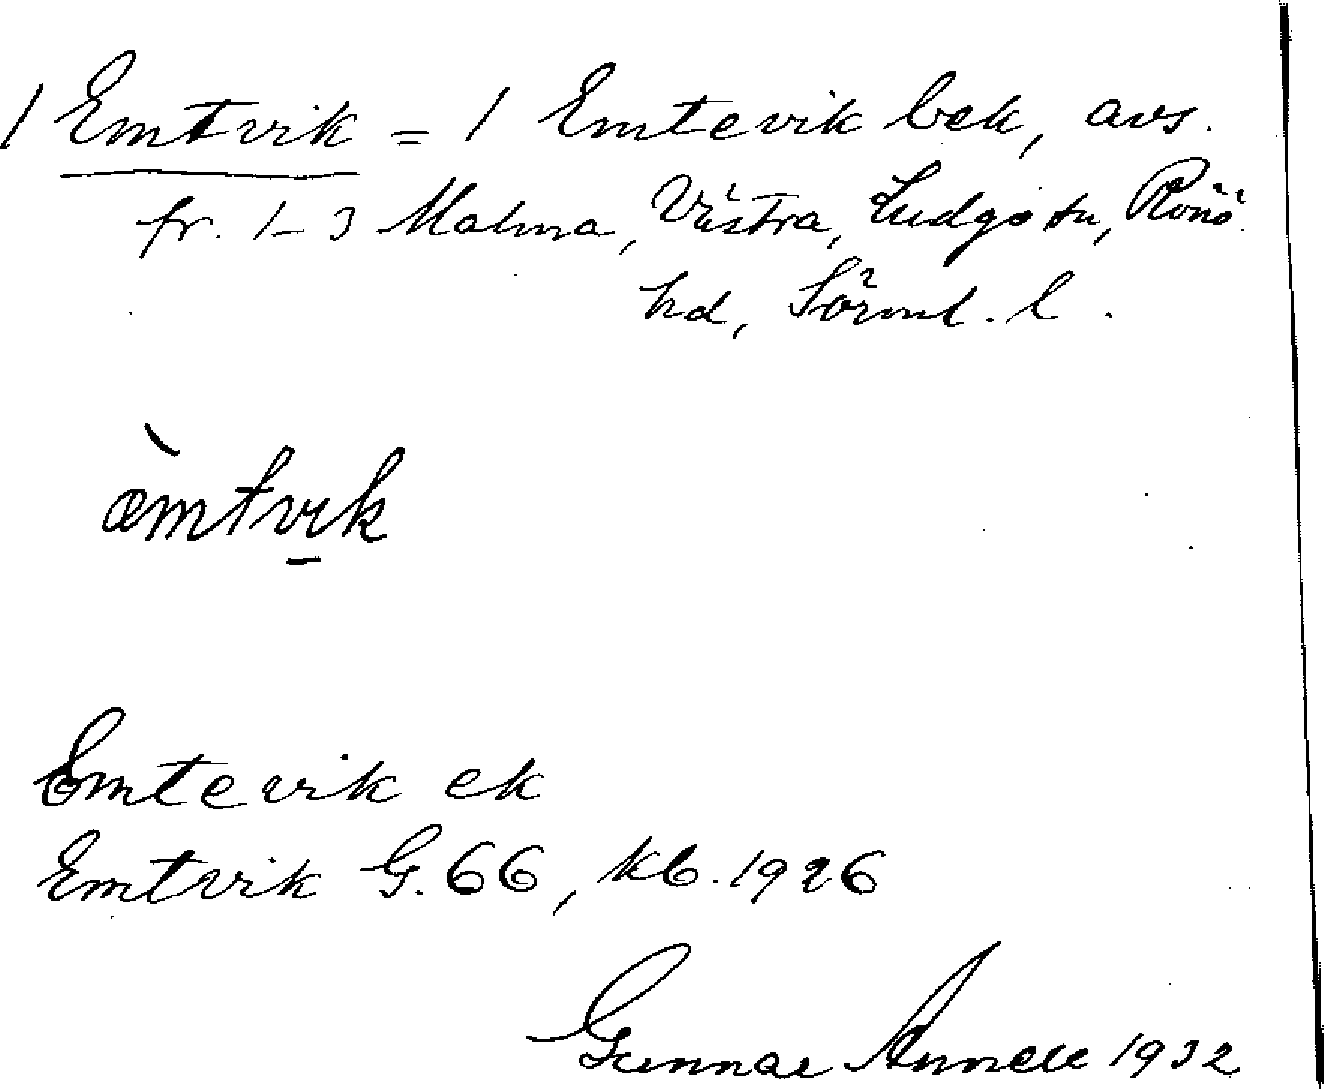 1 Emtvik = 1 Emtevik bek, avs.
fr. 1–3 Malma, Västra, Ludgo sn, Rönö
hd, Sörml. l.
æ̀mtvi̠k
Emtevik ek
Emtvik G. 66, kb. 1926
Gunnar Annell 1932